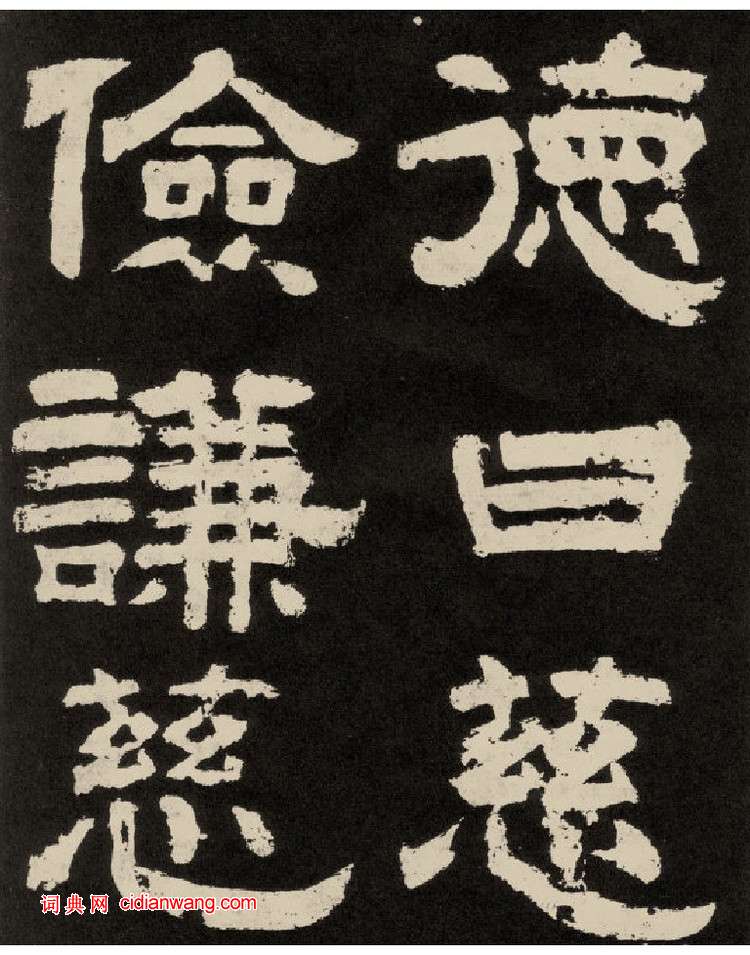 德曰慈
儉謙慈
词典网 cidianwang.com